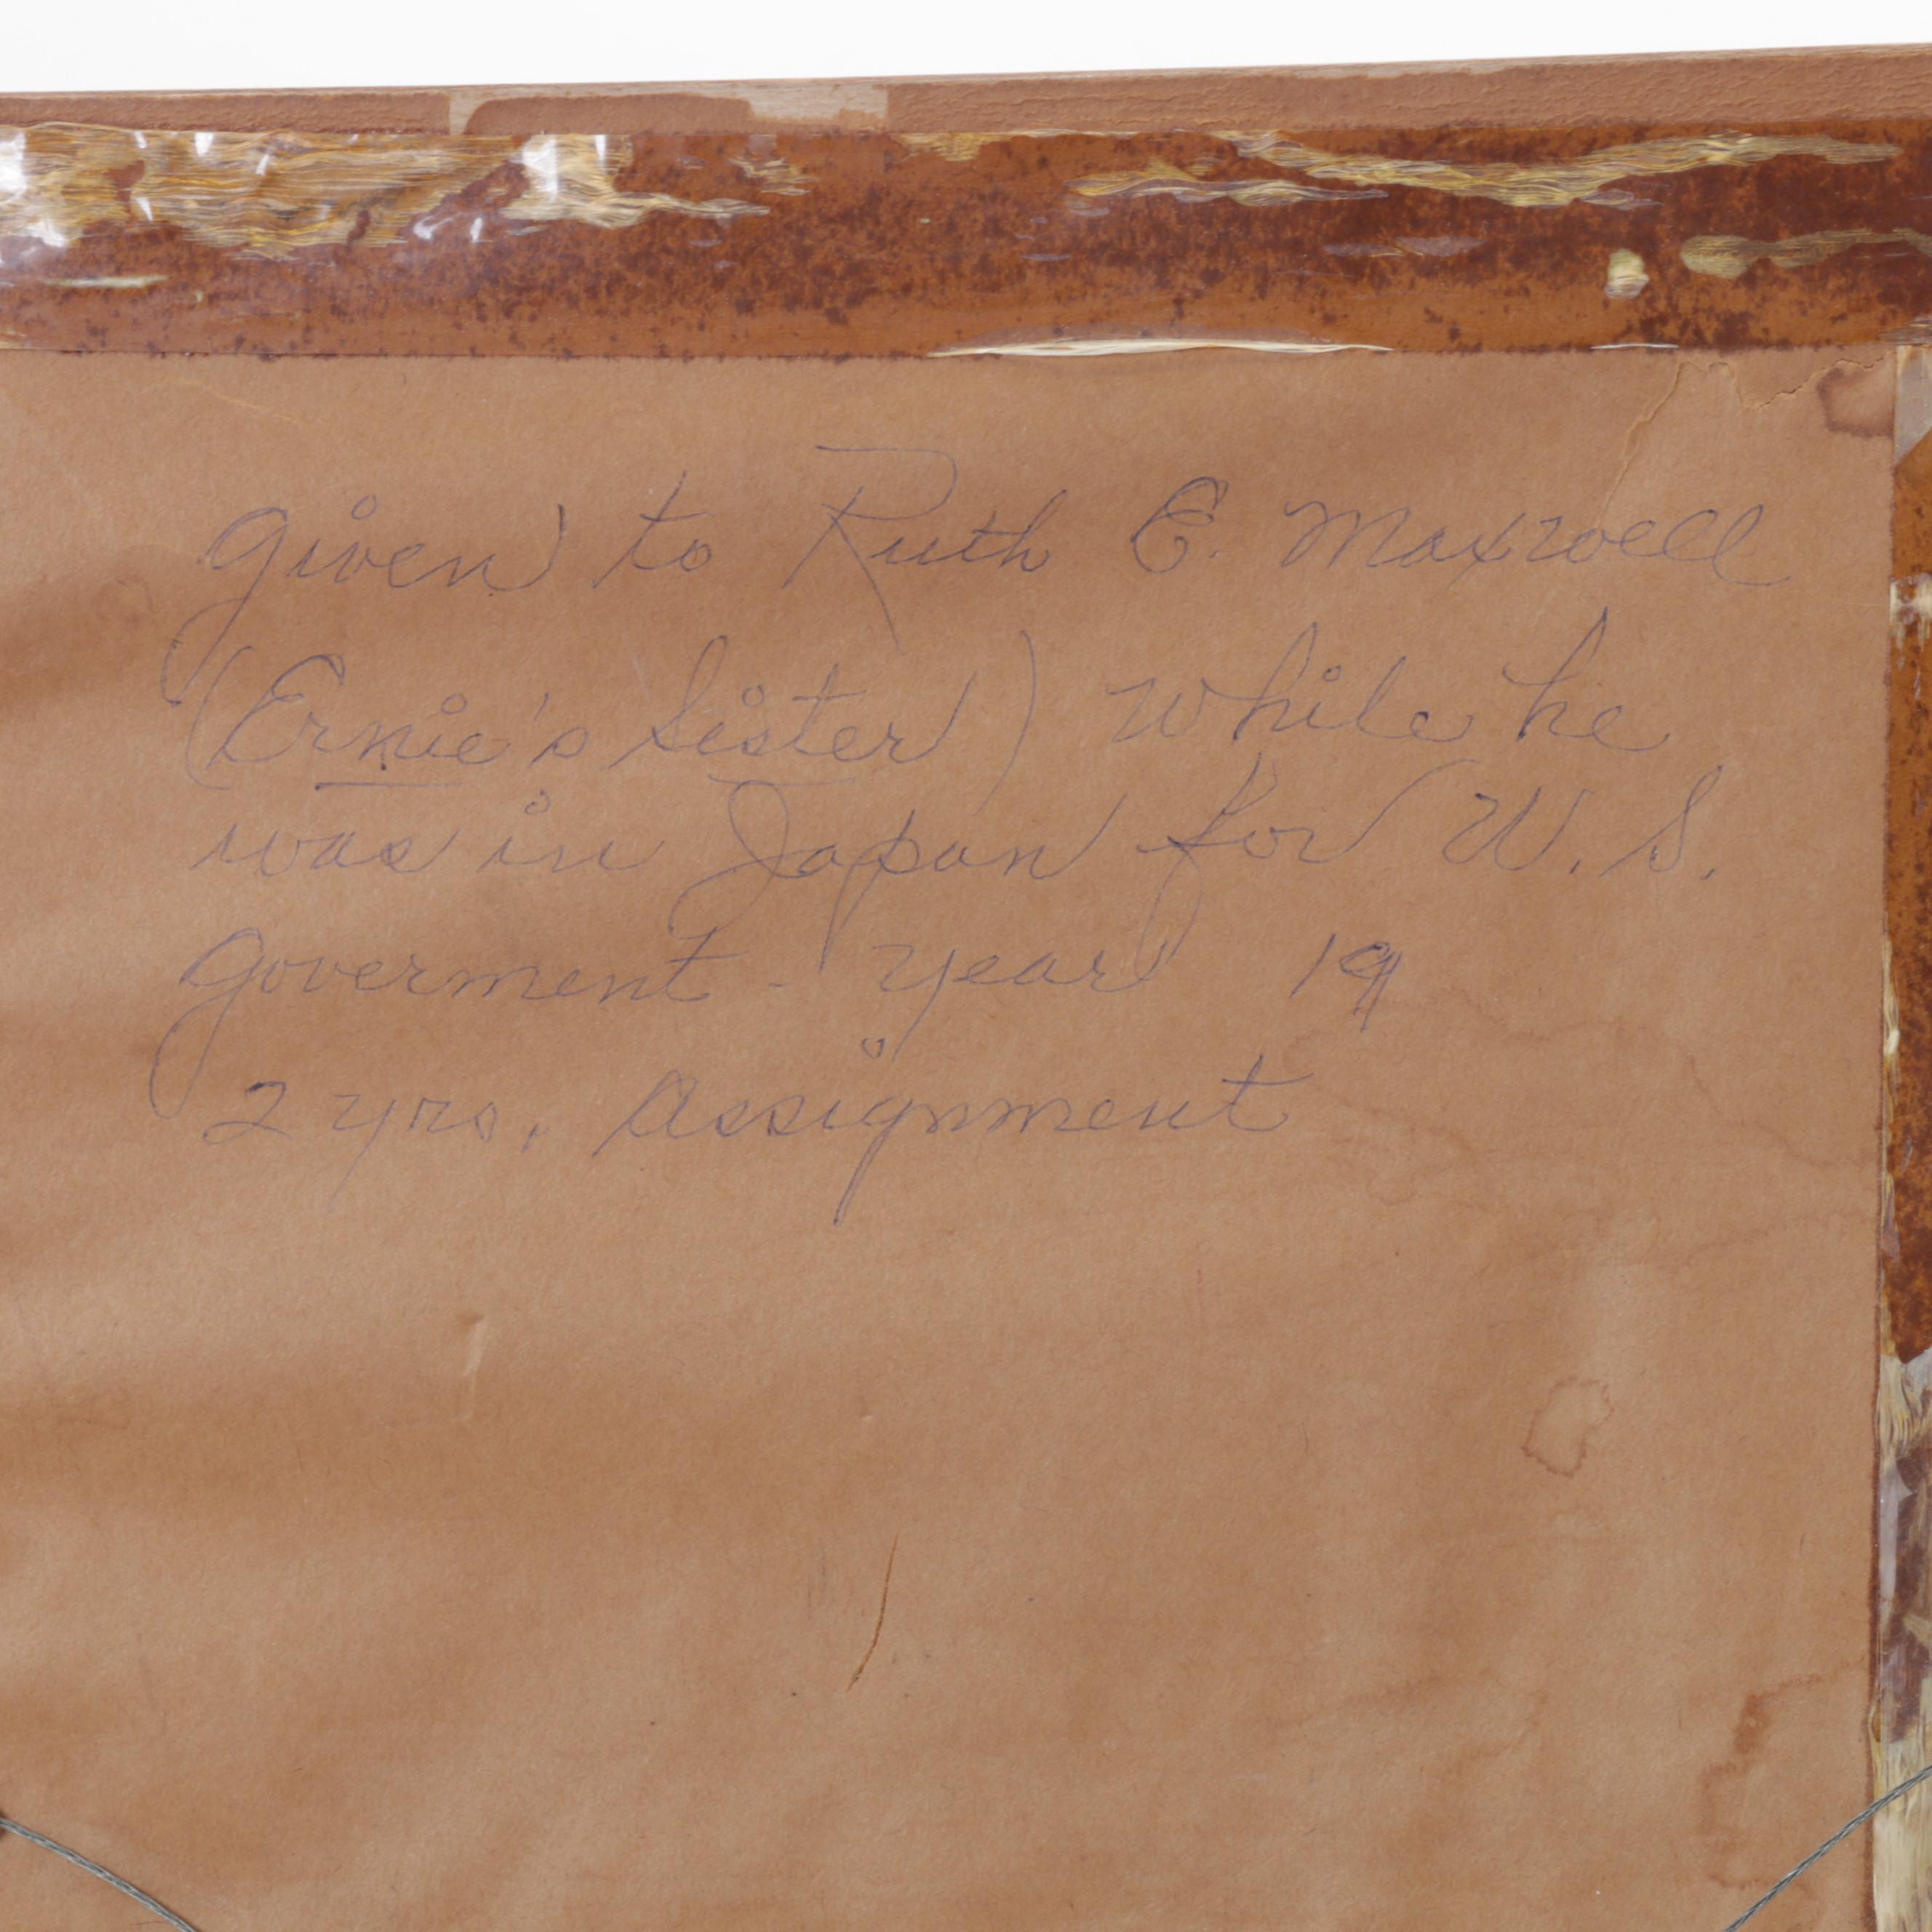 given to Ruth E. Maxwell
(Ernie's Sister) while he
was in Japan for U.S.
Goverment - year 19
2 yrs. Assignment